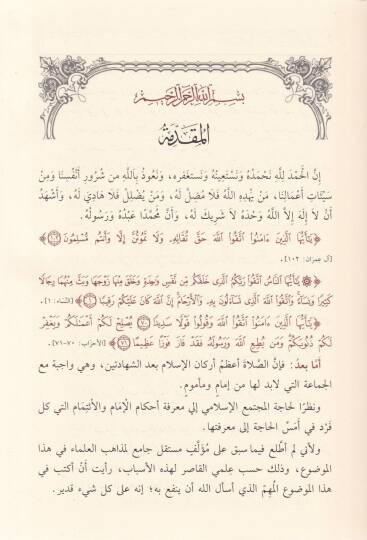 بسم الله الرحمن الرحيم
المقدمة
إنَّ الحَمْدَ لِلَّهِ نَحْمَدُهُ وَنَسْتَعِينُهُ وَنَسْتَغْفِره، وَنَعُوذُ بِاللَّهِ من شُرُورِ أَنْفُسِنَا وَمِنْ
سَيِّئَاتِ أَعْمَالِنَا، مَنْ يَهْدِهِ اللَّهُ فَلَا مُضِلَّ لَهُ، وَمَنْ يُضْلِلْ فَلَا هَادِيَ لَهُ، وَأَشْهَدُ
أَنْ لَا إِلَهَ إِلاَّ اللَّهُ وَحْدَهُ لَا شَرِيكَ لَهُ، وَأَنَّ مُحَمَّدًا عَبْدُهُ وَرَسُولُهُ.
﴿يَٰٓأَيُّهَا ٱلَّذِينَ ءَامَنُوا۟ ٱتَّقُوا۟ ٱللَّهَ حَقَّ تُقَاتِهِۦ وَلَا تَمُوتُنَّ إِلَّا وَأَنتُم مُّسْلِمُونَ ١٠٢﴾
[آل عمران: ١٠٢].
﴿يَٰٓأَيُّهَا ٱلنَّاسُ ٱتَّقُوا۟ رَبَّكُمُ ٱلَّذِى خَلَقَكُم مِّن نَّفْسٍ وَٰحِدَةٍ وَخَلَقَ مِنْهَا زَوْجَهَا وَبَثَّ مِنْهُمَا رِجَالًا
كَثِيرًا وَنِسَآءً وَٱتَّقُوا۟ ٱللَّهَ ٱلَّذِى تَسَآءَلُونَ بِهِۦ وَٱلْأَرْحَامَ إِنَّ ٱللَّهَ كَانَ عَلَيْكُمْ رَقِيبًا ١﴾ [النساء: ١].
﴿يَٰٓأَيُّهَا ٱلَّذِينَ ءَامَنُوا۟ ٱتَّقُوا۟ ٱللَّهَ وَقُولُوا۟ قَوْلًا سَدِيدًا ٧٠ يُصْلِحْ لَكُمْ أَعْمَٰلَكُمْ وَيَغْفِرْ
لَكُمْ ذُنُوبَكُمْ وَمَن يُطِعِ ٱللَّهَ وَرَسُولَهُۥ فَقَدْ فَازَ فَوْزًا عَظِيمًا ٧١﴾ [الأحزاب: ٧٠-٧١].
أمّا بعدُ: فإنَّ الصَّلاةَ أعظمُ أركان الإسلام بعد الشهادتين، وهي واجبة مع
الجماعة التي لابد لها من إمامٍ ومأمومٍ.
ونظرًا لحاجة المجتمع الإسلامي إلي معرفة أحكام الإمام والائتمام التي كل
فَرْد في أَمَسِّ الحاجة إلى معرفتها.
ولأني لم أطلع فيما سبق على مُؤَلَّفٍ مستقل جامع لمذاهب العلماء في هذا
الموضوع، وذلك حسب عِلمي القاصر لهذه الأسباب، رأيت أنْ أكتب في
هذا الموضوع المُهِمّ الذي أسأل الله أن ينفع به؛ إنه على كل شيء قدير.